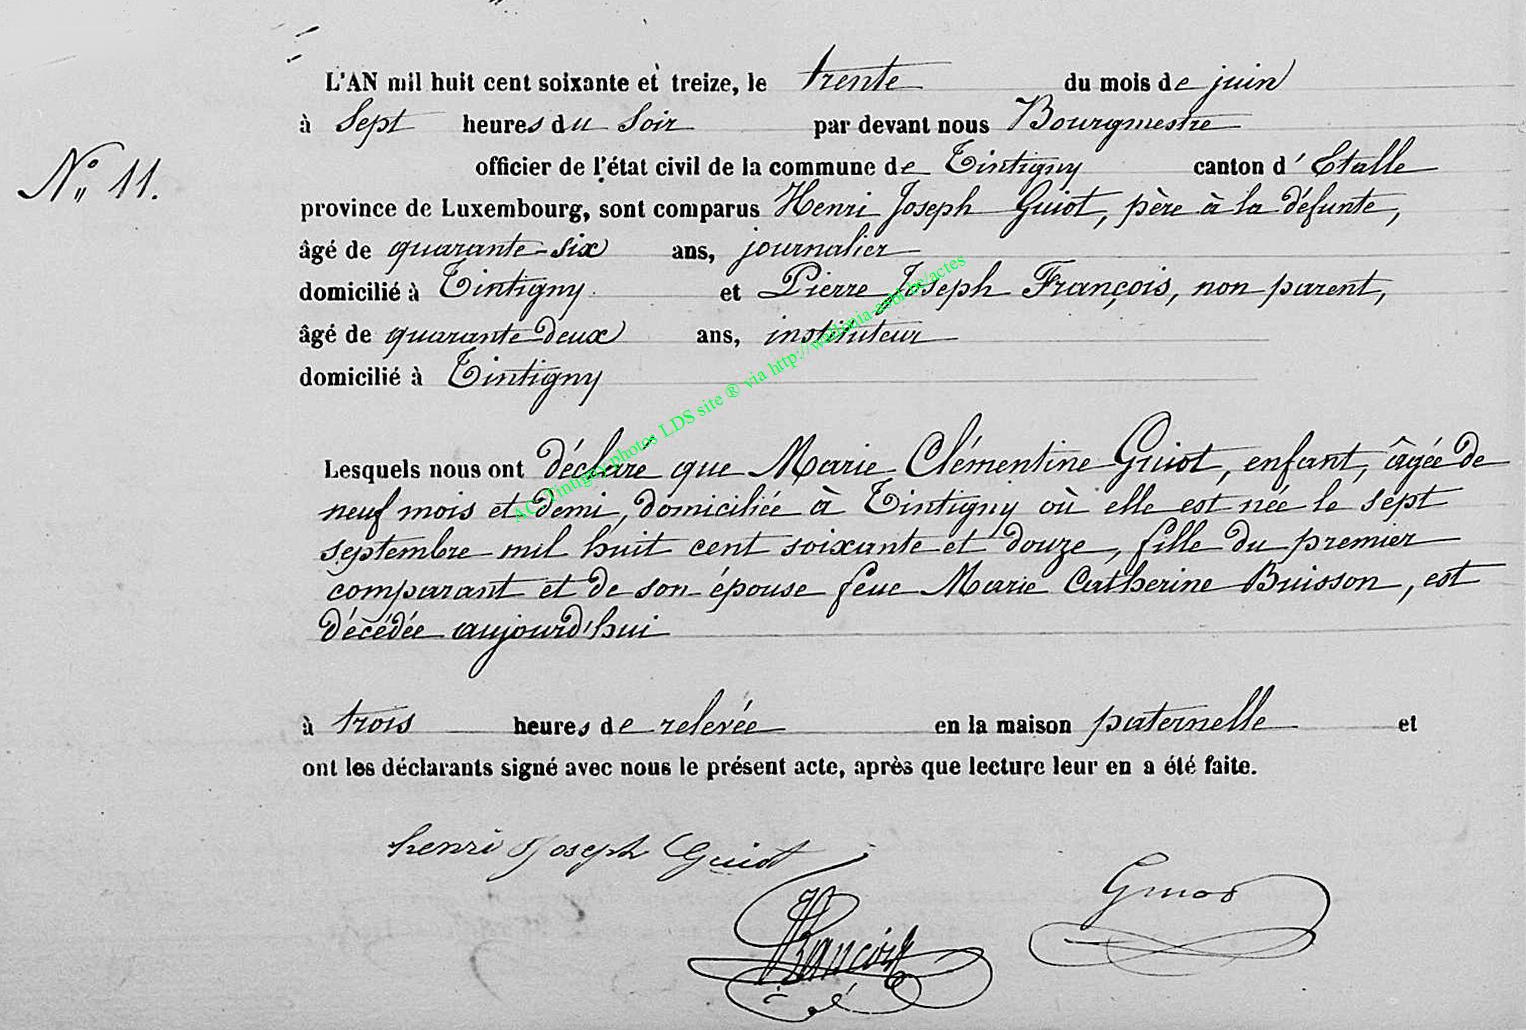 L'AN mil huit cent soixante et treize, le trente du mois de juin
à Sept heures du Soir par devant nous Bourgmestre
officier de l'état civil de la commune de Tintigny canton d'Etalle
N° 11.
province de Luxembourg, sont comparus Henri Joseph Guiot, père à la défunte,
âgé de quarante-six ans, journalier
domicilié à Tintigny et Pierre Joseph François, non parent,
âgé de quarante deux ans, instituteur
domicilié à Tintigny
AC Tintigny photos LDS site ® via http://wallonia-asbl.be/actes
Lesquels nous ont déclaré que Marie Clémentine Guiot, enfant, âgée de
neuf mois et demi, domiciliée à Tintigny où elle est née le sept
septembre mil huit cent soixante et douze, fille du premier
comparant et de son épouse feue Marie Catherine Buisson, est
décédée aujourd'hui
à trois heures de relevée en la maison paternelle et
ont les déclarants signé avec nous le présent acte, après que lecture leur en a été faite.
henri Joseph Guiot
François